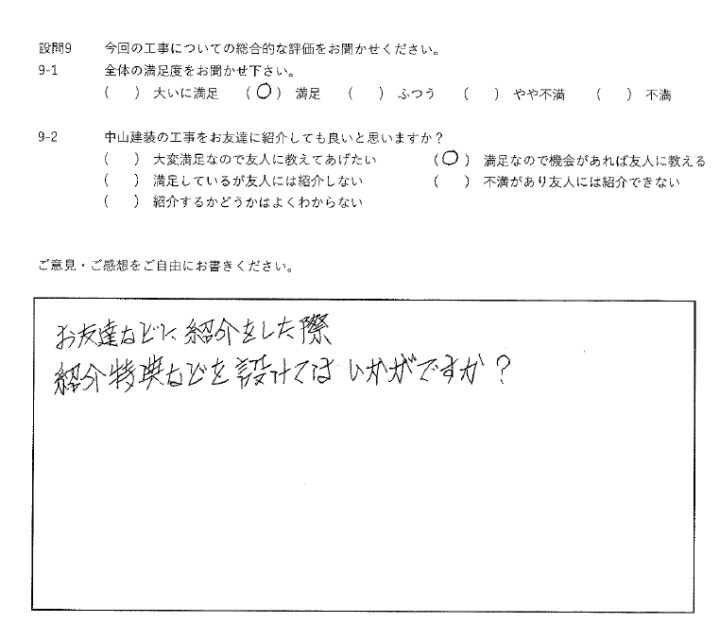 設問9 今回の工事についての総合的な評価をお聞かせください。
9-1 全体の満足度をお聞かせ下さい。
( ) 大いに満足 (○) 満足 ( ) ふつう ( ) やや不満 ( ) 不満
9-2 中山建装の工事をお友達に紹介しても良いと思いますか?
( ) 大変満足なので友人に教えてあげたい (○) 満足なので機会があれば友人に教える
( ) 満足しているが友人には紹介しない ( ) 不満があり友人には紹介できない
( ) 紹介するかどうかはよくわからない
ご意見・ご感想をご自由にお書きください。
お友達などに紹介をした際
紹介特典などを設けてはいかがですか?